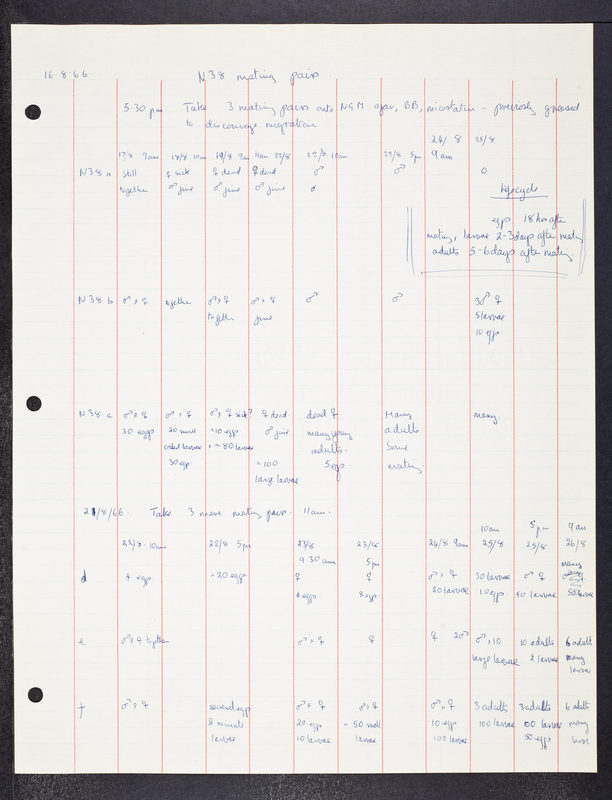 16.8.66. N38 mating pairs.
5.30 pm Take 3 mating pairs onto NGM agar, BB, nicostatin - previously greased
to discourage migration
24/8 25/8
17/8 9am 18/8 10am 19/8 9am 11am 22/8 22/8 10am 22/8 5pm 9am
N38 a still ♀ sick ♀ dead ♀ dead ♂ ♂ 0
together ♂ fine ♂ fine ♂ fine
Lifecycle
eggs 18hrs after
mating, larvae 2-3days after mating
adults 5-6days after mating
N38 b ♂ & ♀ together ♂ & ♀ ♂ & ♀ ♂ ♂ 3♂ ♀
together fine 5 larvae
10 eggs
N38 c ♂ & ♀ ♂ & ♀ ♂ & ♀ sick? ♀ dead dead ♀ Many many.
30 eggs 20 small ~10 eggs ♂ fine many young adults
coiled larvae ~80 larvae adults. some
30 egg ~100 5 eggs mating
large larvae
21/8/66. Take 3 more mating pairs. 11am.
10am 5pm 9am
22/8 10am 22/8 5pm 23/8 23/8 24/8 9am 25/8 25/8 26/8
9 30am 5pm many
d 4 eggs ~20 eggs ♀ ♀ ♂ & ♀ 30 larvae ♂ ♀
6 eggs 8 eggs. 20 larvae 10 eggs 50 larvae 50 larvae
e ♂ & ♀ together ♂ & ♀ ♀ ♀ 2♂ ♂, 10 10 adults 6 adult
large larvae 2 larvae many
larvae
f ♂ & ♀ several eggs ♂ & ♀ ♂ & ♀ ♂ & ♀ 3 adults 3 adults 6 adult
2 minute 20 eggs ~50 small 10 eggs 100 larvae 100 larvae many
larvae 10 larvae larvae 100 larvae 50 eggs larvae